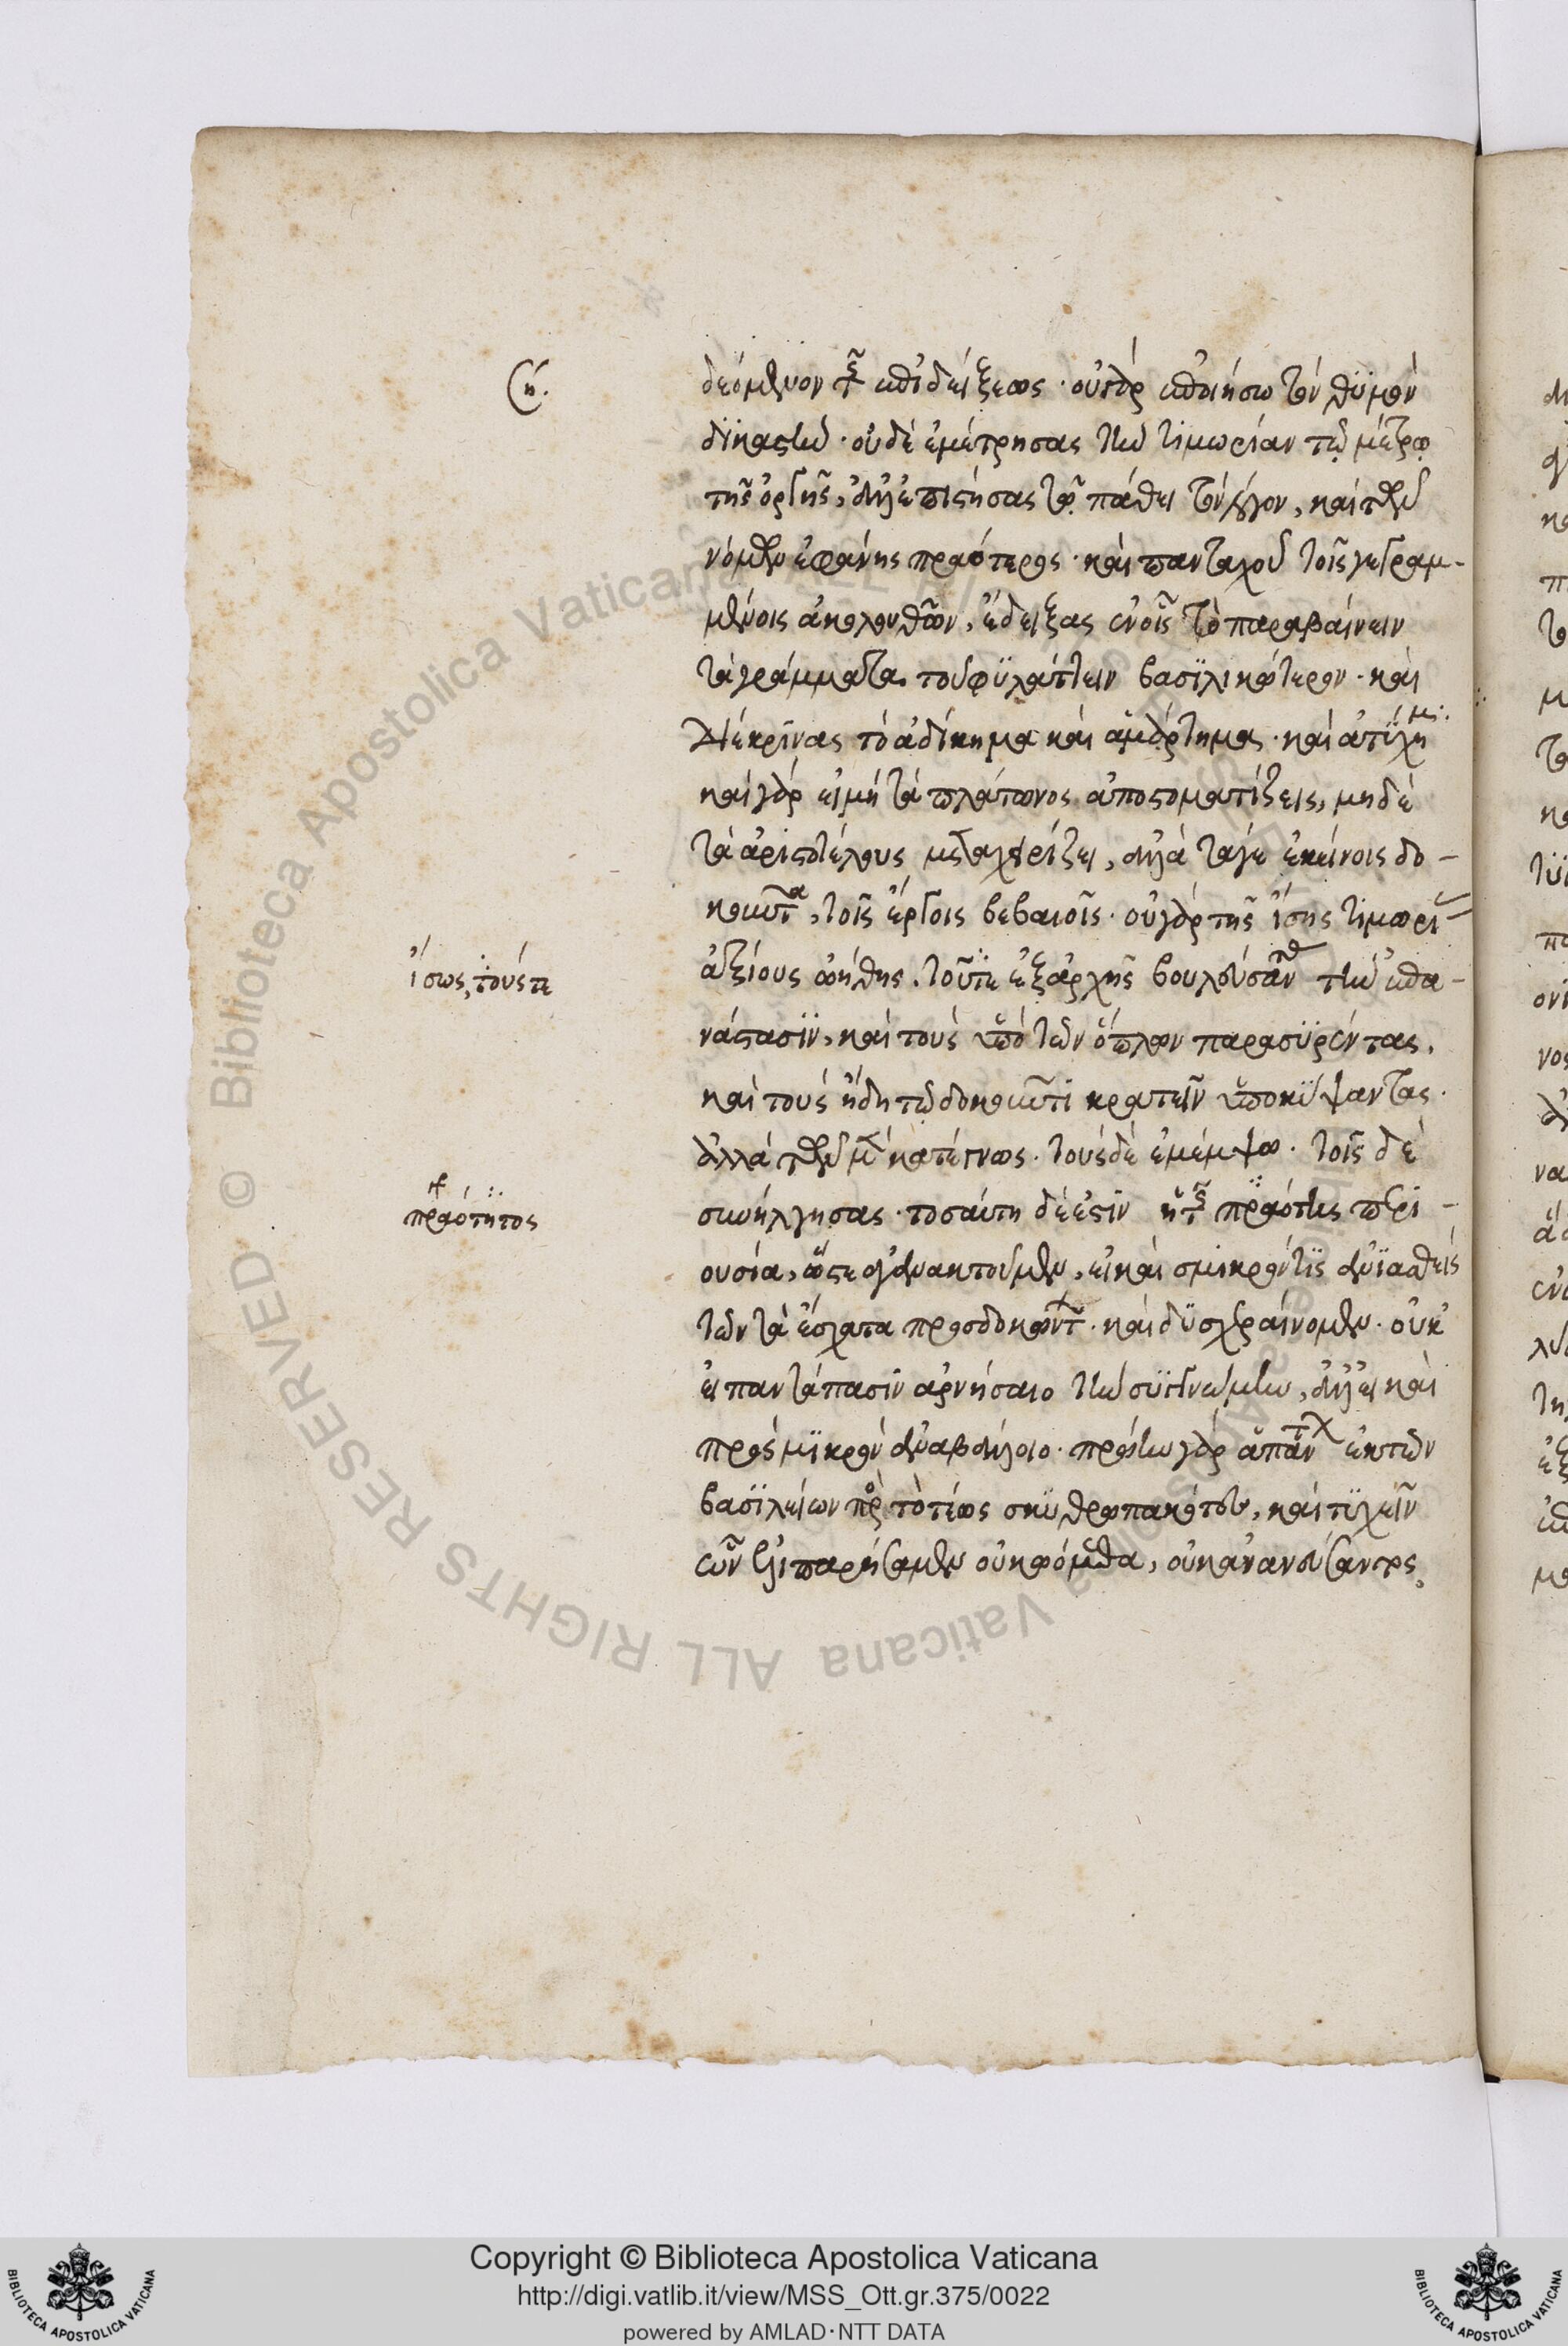 η´.
δεόμενον τῆς ἐπιδείξεως· οὐ γὰρ ἐποιήσω τὸν θυμὸν
δικαστήν· οὐδὲ ἐμέτρησας τὴν τιμωρίαν τῷ μέτρῳ
τῆς ὀργῆς, ἀλλ' ἐπιστήσας τῷ πάθει τὸν λόγον, καὶ τῶν
νόμων ἐφάνης πραότερος· καὶ πανταχοῦ τοῖς γεγραμ-
μένοις ἀκολουθῶν, ἔδειξας ἐν οἷς τὸ παραβαίνειν
τὰ γράμματα τοῦ φυλάττειν βασιλικώτερον· καὶ
διέκρινας τὸ ἀδίκημα καὶ ἁμάρτημα· καὶ ἀτύχημα:
καὶ γὰρ εἰ μὴ τὰ πλάτωνος ἀποστοματίζεις, μηδὲ
τὰ ἀριστοτέλους μεταχειρίζει, ἀλλὰ τά γε ἐκείνοις δο-
κοῦντα, τοῖς ἔργοις βεβαιοῖς· οὐ γὰρ τῆς ἴσης τιμωρίας
ἴσως, τούς τε
ἀξίους ᾠήθης. τοῦ τε ἐξ ἀρχῆς βουλεύσανθ τὴν ἐπα-
νάστασιν, καὶ τοὺς ὑπὸ τῶν ὅπλων παρασυρέντας,
καὶ τοὺς ἤδη τῷ δοκοῦντι κρατεῖν ὑποκύψαντας.
ἀλλὰ τῶν μὲν κατέγνως· τοὺς δὲ ἐμέμψω· τοῖς δὲ
πραότητος
συνήλγησας· τοσαύτη δέ ἐστιν ἡ τῆς πραότης περι-
ουσία, ὥστε ἀγανακτοῦμεν, εἰ καὶ σμικρόν τις ἀνιαθείς
τῶν τὰ ἔσχατα προσδοκώντων· καὶ δυσχεραίνομεν· οὐκ
εἰ παντάπασιν ἀρνήσαιο τὴν συγγνώμην, ἀλλ' εἰ καὶ
πρὸς μικρὸν ἀναβάλλοιο· πρώην γὰρ ἐκ τῶν
βασιλείων τὸ τέως σκυθρωπακότων, καὶ τυχεῖν
ὧν οὐκ ᾠόμεθα, οὐκ